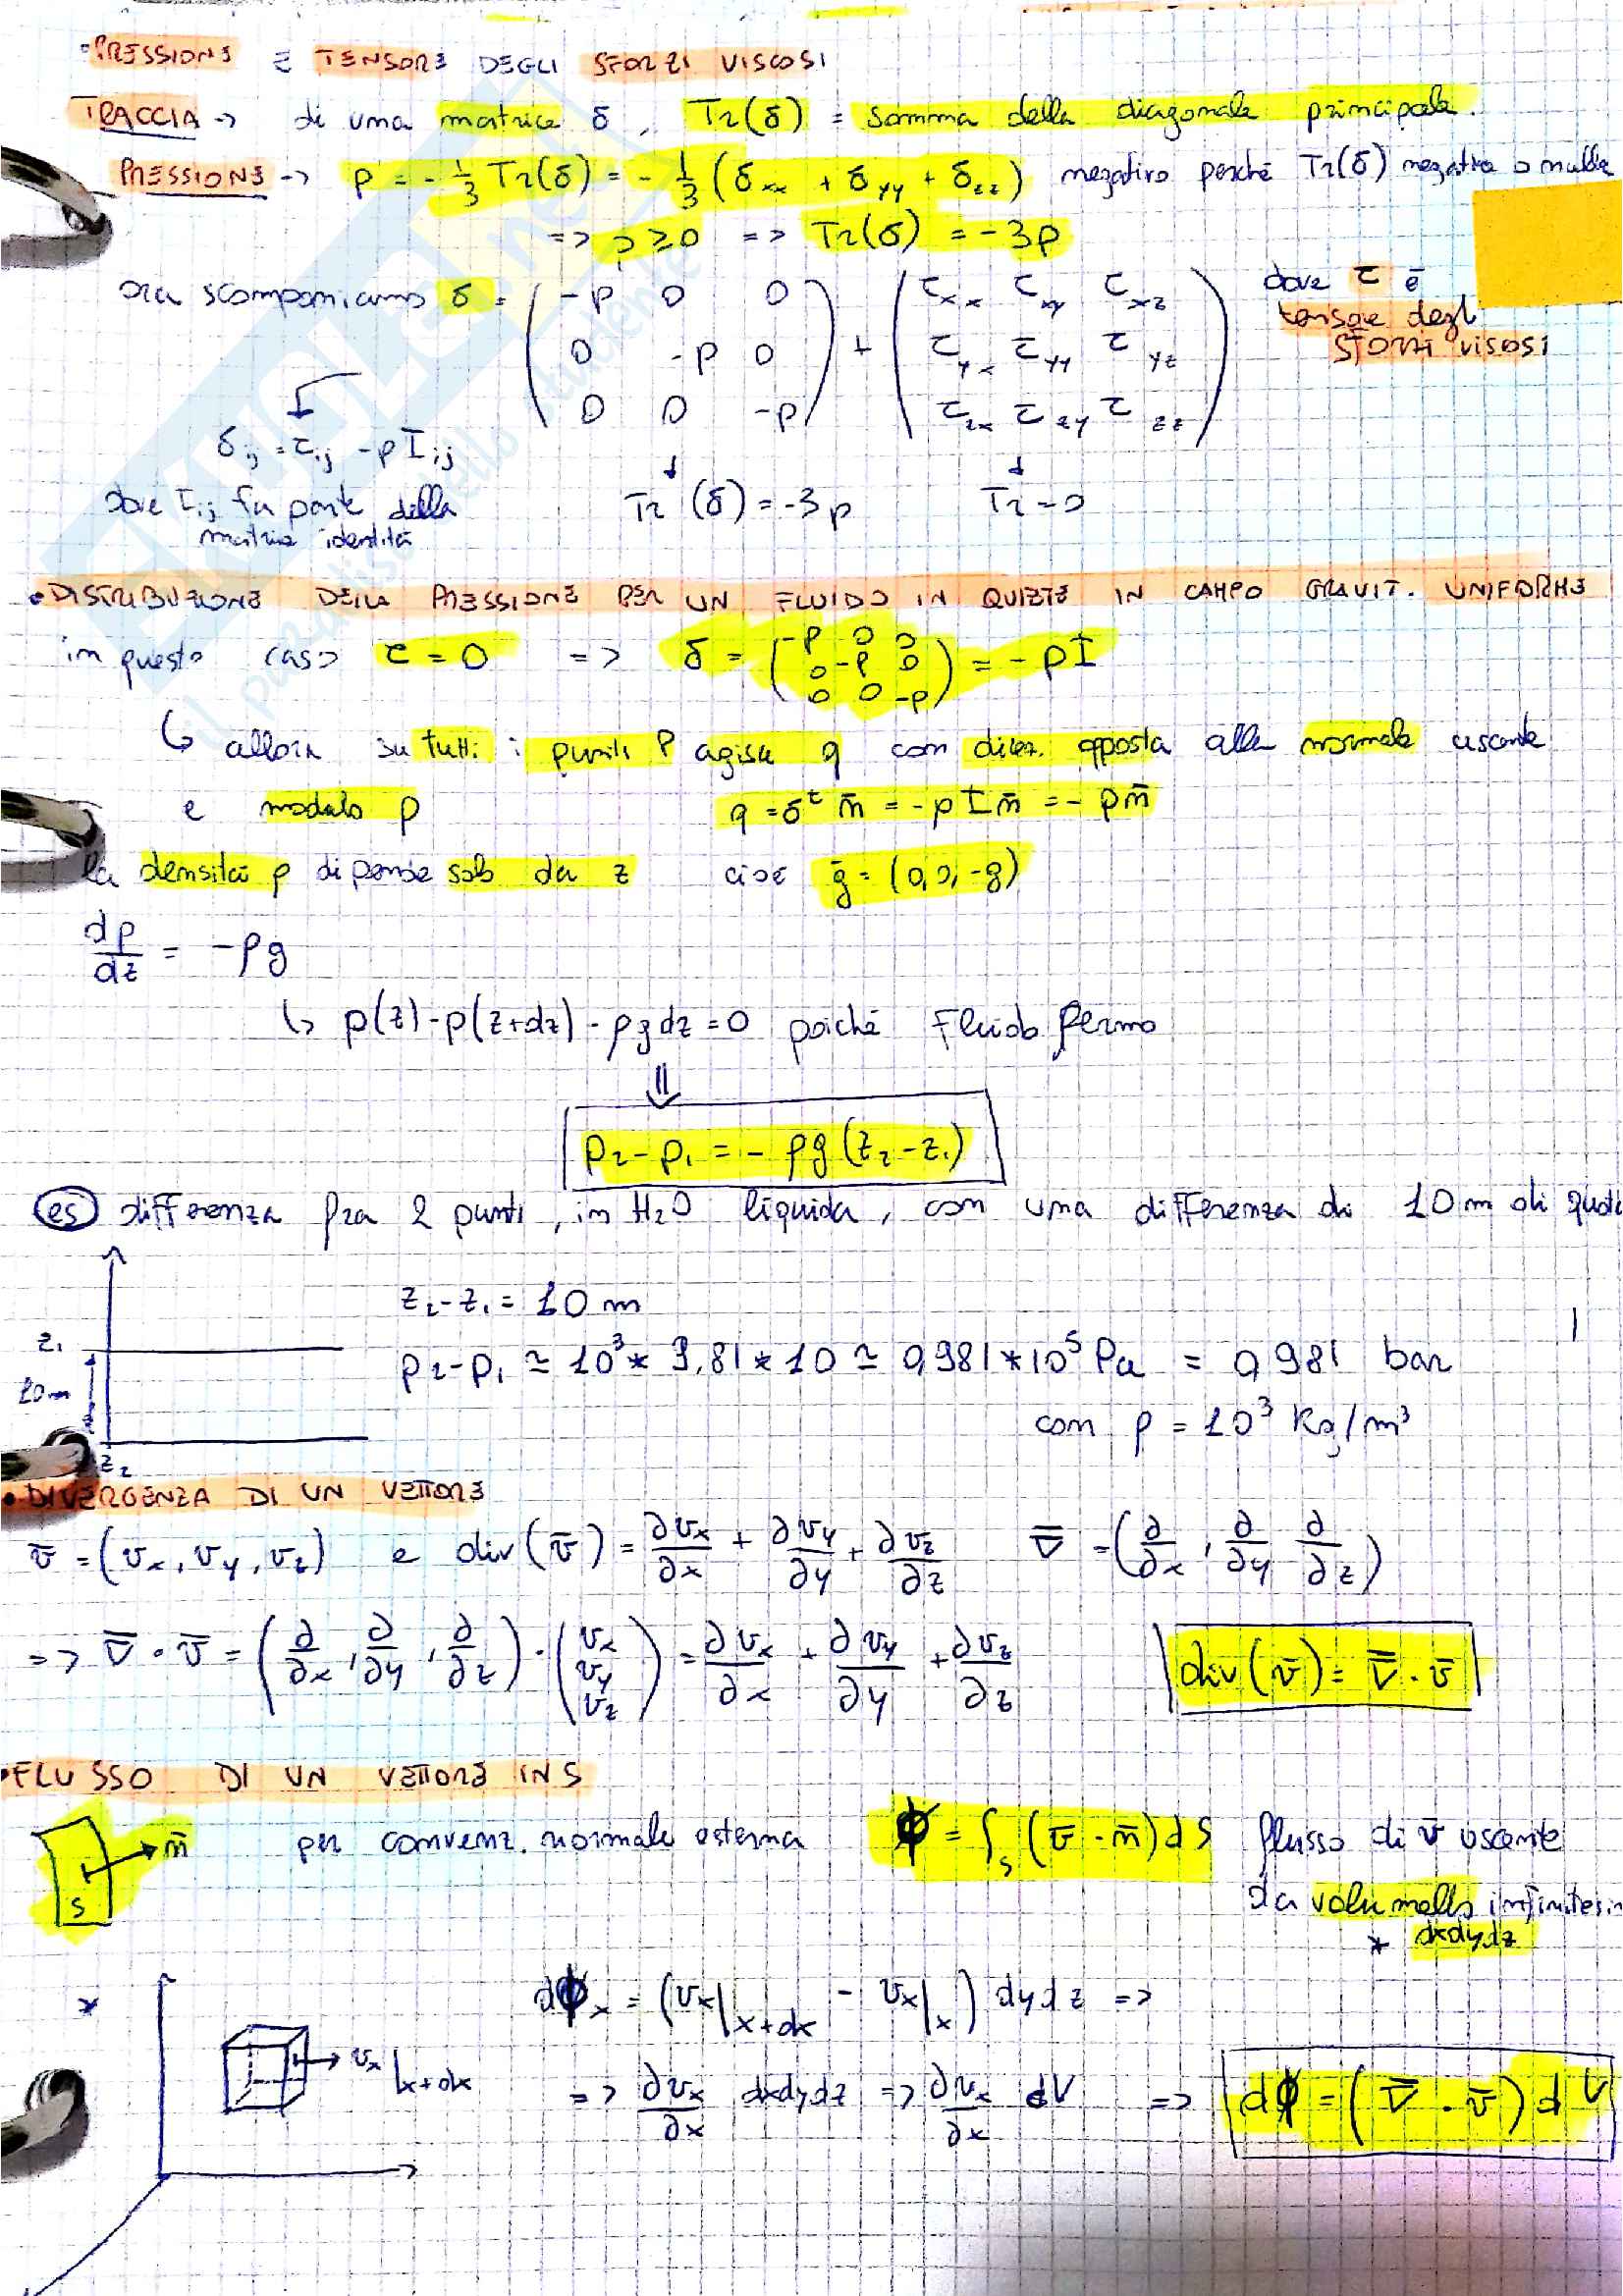 •PRESSIONE E TENSORE DEGLI SFORZI VISCOSI
TRACCIA -> di una matrice δ, Tr(δ) = somma della diagonale principale.
PRESSIONE -> p = - 1/3 Tr(δ) = - 1/3 (δxx + δyy + δzz) negativo perché Tr(δ) negativa o nulla
=> p ≥ 0 => Tr(δ) = -3p
ora scomponiamo δ = ( -p 0 0 ) + ( τxx τxy τxz ) dove τ è
( 0 -p 0 ) ( τyx τyy τyz ) tensore degli
( 0 0 -p ) ( τzx τzy τzz ) SFORZI VISCOSI
δij = τij - pIij
dove Iij fa parte della
matrice identità
Tr (δ) = -3p Tr = 0
•DISTRIBUZIONE DELLA PRESSIONE PER UN FLUIDO IN QUIETE IN CAMPO GRAVIT. UNIFORME
in questo caso τ = 0 => δ = ( -p 0 0 0 -p 0 0 0 -p ) = -pI
↳ allora su tutti i punti P agisce q con direz. opposta alla normale uscente
e modulo p q = δᵗ n̄ = -pI n̄ = -p n̄
la densità ρ dipende solo da z cioè ḡ = (0,0,-g)
dp/dz = -ρg
↳ p(z) - p(z+dz) - ρg dz = 0 poiché Fluido fermo
⇓
p₂ - p₁ = - ρg (z₂ - z₁)
es differenza fra 2 punti, in H₂O liquida, con una differenza di 10 m di quota
z₂ - z₁ = 10 m
z₁
p₂ - p₁ ≃ 10³ * 9,81 * 10 ≃ 0,981 * 10⁵ Pa = 0,981 bar
10 m
con ρ = 10³ Kg/m³
z₂
•DIVERGENZA DI UN VETTORE
v̄ = (vx, vy, vz) e div(v̄) = ∂vx/∂x + ∂vy/∂y + ∂vz/∂z ∇̄ = (∂/∂x, ∂/∂y ∂/∂z)
=> ∇̄ · v̄ = (∂/∂x, ∂/∂y, ∂/∂z) · (vx vy vz) = ∂vx/∂x + ∂vy/∂y + ∂vz/∂z div(v̄) = ∇̄ · v̄
•FLUSSO DI UN VETTORE IN S
n̄ per convenz. normale esterna ϕ = ∫s (v̄ · n̄) dS flusso di v̄ uscente
S
da volumetto
* dxdydz
* dϕx = (vx|x+dx - vx|x) dydz =>
vx|x+dx
=> ∂vx/∂x dxdydz => ∂vx/∂x dV => dϕ = (∇̄ · v̄) dV